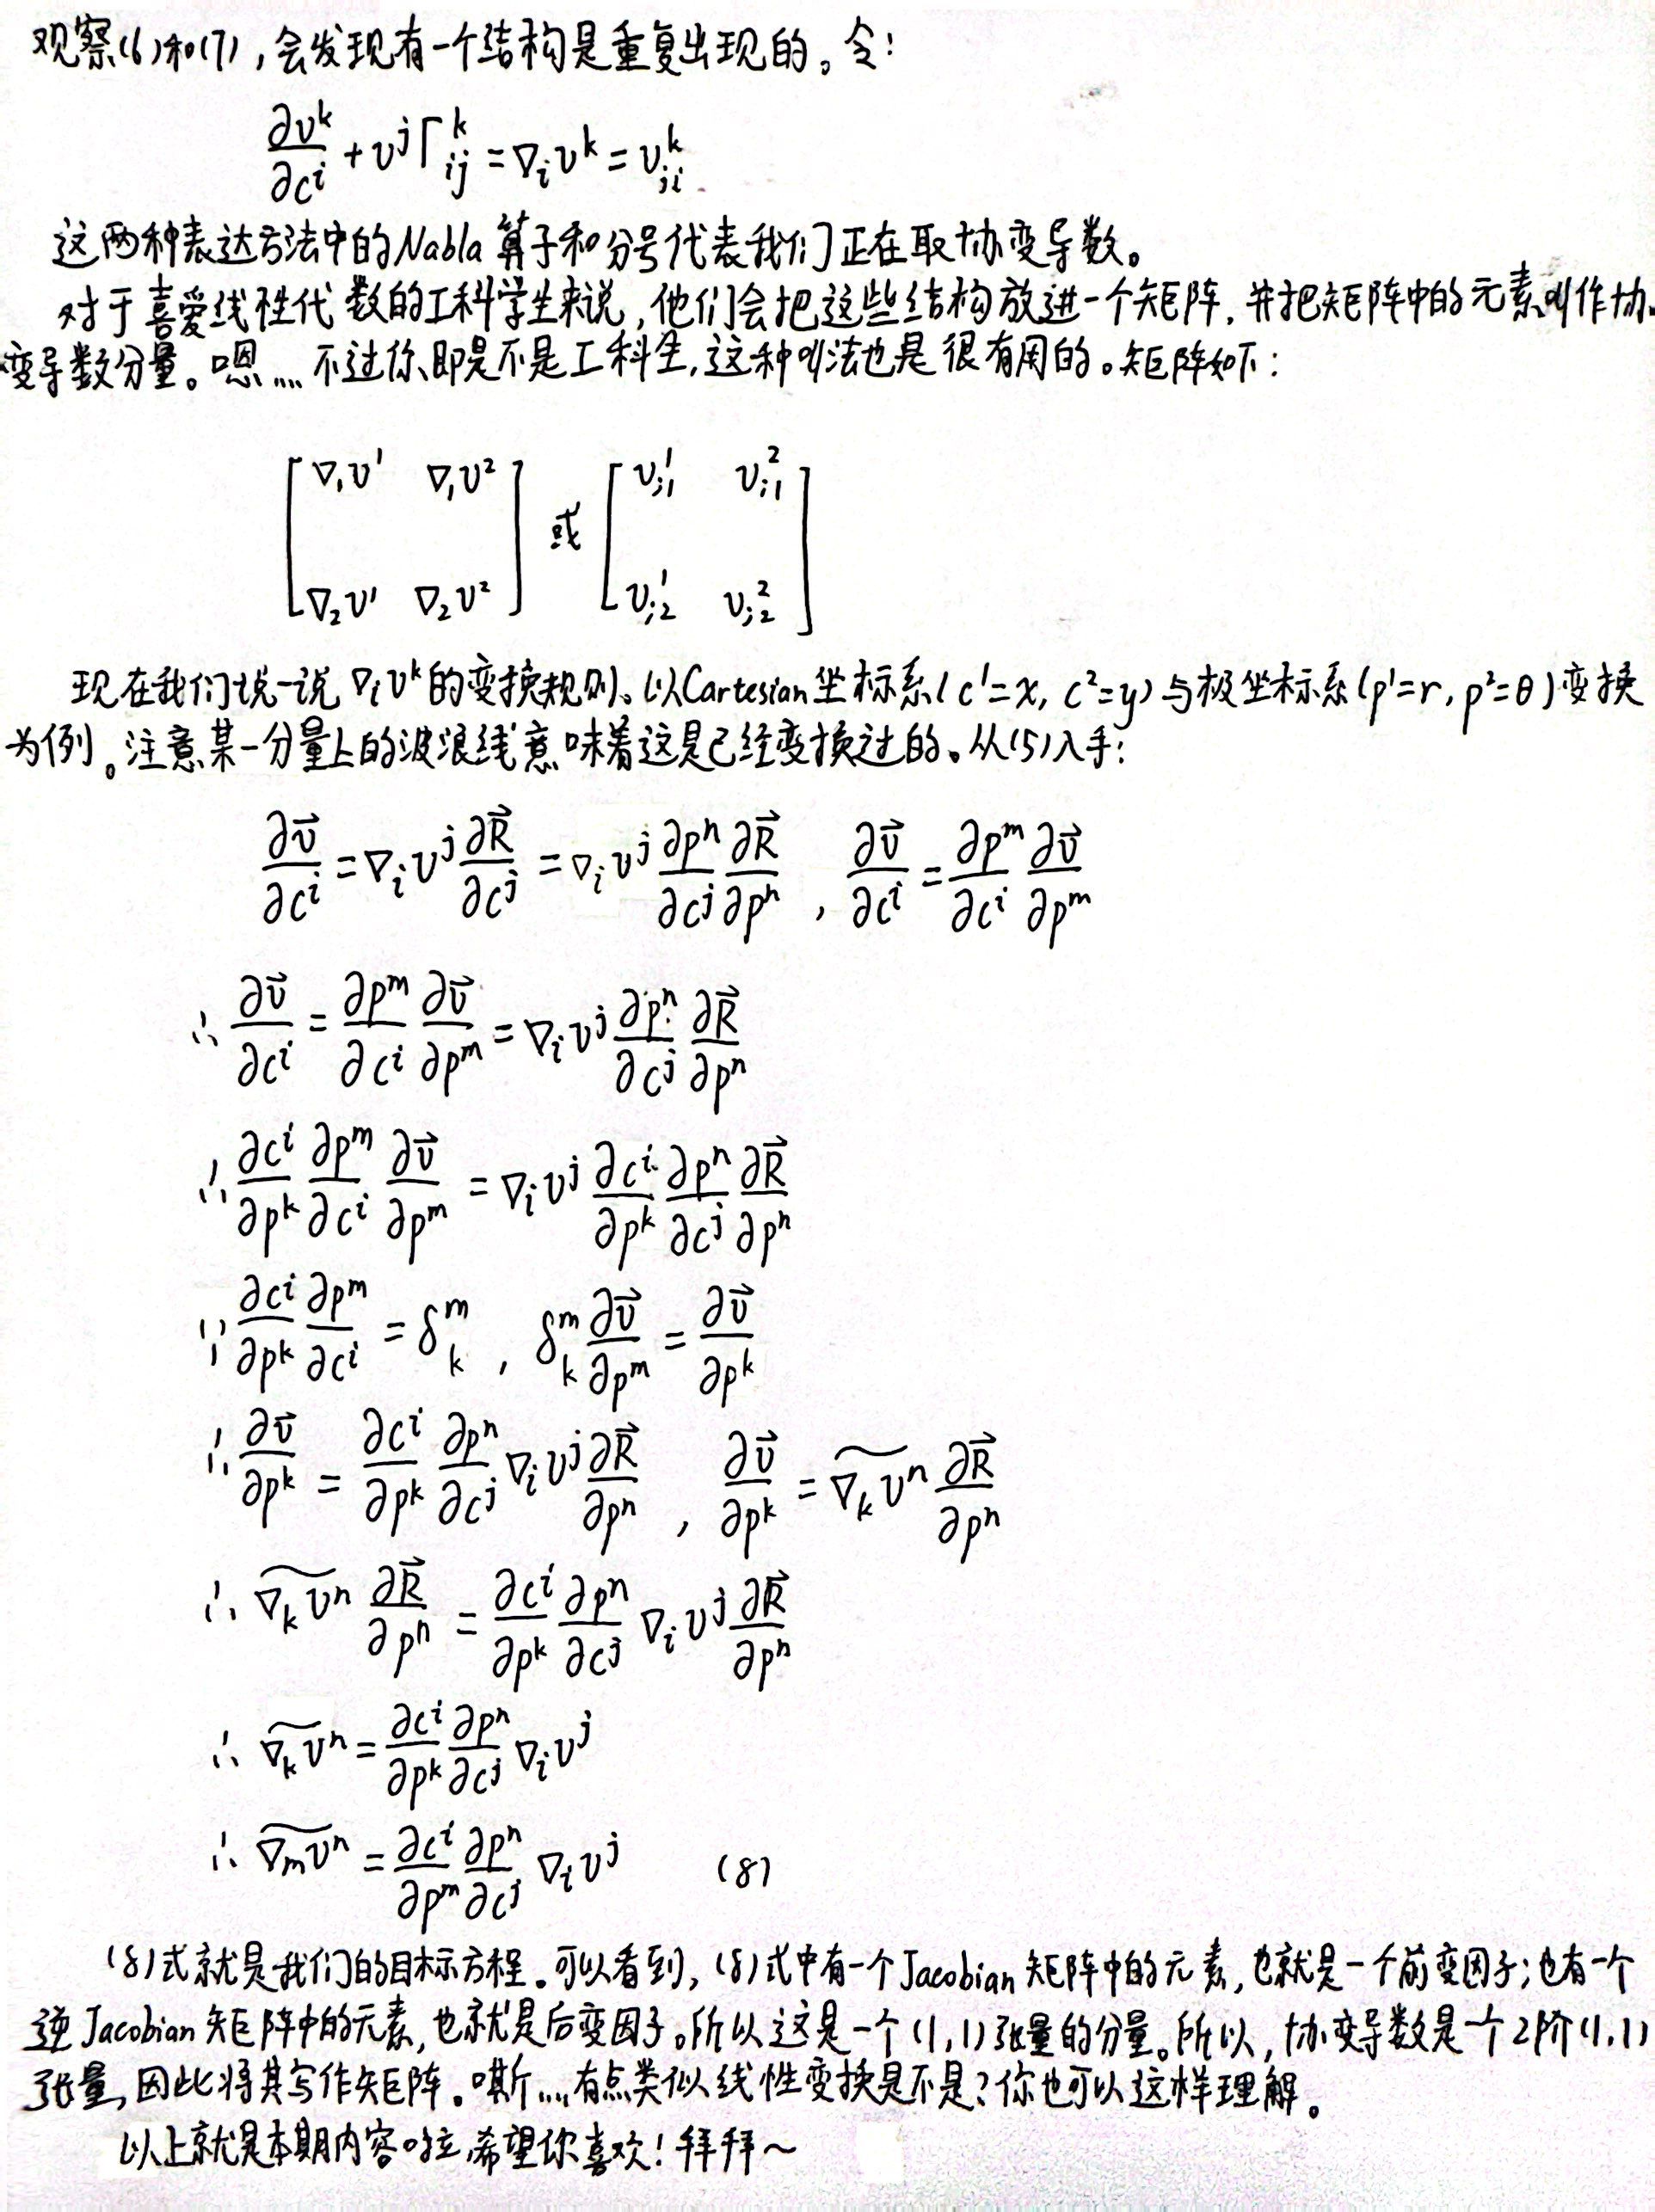 观察(6)和(7),会发现有一个结构是重复出现的。令:
∂v^k/∂c^i + v^j Γ^k_{ij} = ∇_i v^k = v^k_{;i}
这两种表达方法中的Nabla算子和分号代表我们正在取协变导数。
对于喜爱线性代数的工科学生来说,他们会把这些结构放进一个矩阵,并把矩阵中的元素叫作协
变导数分量。嗯……不过你即是不是工科生,这种叫法也是很有用的。矩阵如下:
[∇_1 v^1 ∇_1 v^2] 或 [v^1_{;1} v^2_{;1}]
[∇_2 v^1 ∇_2 v^2] [v^1_{;2} v^2_{;2}]
现在我们说一说 ∇_i v^k 的变换规则。以Cartesian坐标系(c^1=x, c^2=y)与极坐标系(p^1=r, p^2=θ)变换
为例。注意某一分量上的波浪线意味着这是已经变换过的。从(5)入手:
∂v⃗/∂c^i = ∇_i v^j ∂R⃗/∂c^j = ∇_i v^j ∂p^n/∂c^j ∂R⃗/∂p^n , ∂v⃗/∂c^i = ∂p^m/∂c^i ∂v⃗/∂p^m
∴ ∂v⃗/∂c^i = ∂p^m/∂c^i ∂v⃗/∂p^m = ∇_i v^j ∂p^n/∂c^j ∂R⃗/∂p^n
∴ ∂c^i/∂p^k ∂p^m/∂c^i ∂v⃗/∂p^m = ∇_i v^j ∂c^i/∂p^k ∂p^n/∂c^j ∂R⃗/∂p^n
∵ ∂c^i/∂p^k ∂p^m/∂c^i = δ^m_k , δ^m_k ∂v⃗/∂p^m = ∂v⃗/∂p^k
∴ ∂v⃗/∂p^k = ∂c^i/∂p^k ∂p^n/∂c^j ∇_i v^j ∂R⃗/∂p^n , ∂v⃗/∂p^k = \widetilde{∇_k v^n} ∂R⃗/∂p^n
∴ \widetilde{∇_k v^n} ∂R⃗/∂p^n = ∂c^i/∂p^k ∂p^n/∂c^j ∇_i v^j ∂R⃗/∂p^n
∴ \widetilde{∇_k v^n} = ∂c^i/∂p^k ∂p^n/∂c^j ∇_i v^j
∴ \widetilde{∇_m v^n} = ∂c^i/∂p^m ∂p^n/∂c^j ∇_i v^j (8)
(8)式就是我们的目标方程。可以看到,(8)式中有一个Jacobian矩阵中的元素,也就是一个前变因子;也有一个
逆Jacobian矩阵中的元素,也就是后变因子。所以这是一个(1,1)张量的分量。所以,协变导数是一个2阶(1,1)
张量,因此将其写作矩阵。嘶……有点类似线性变换是不是?你也可以这样理解。
以上就是本期内容啦,希望你喜欢!拜拜~